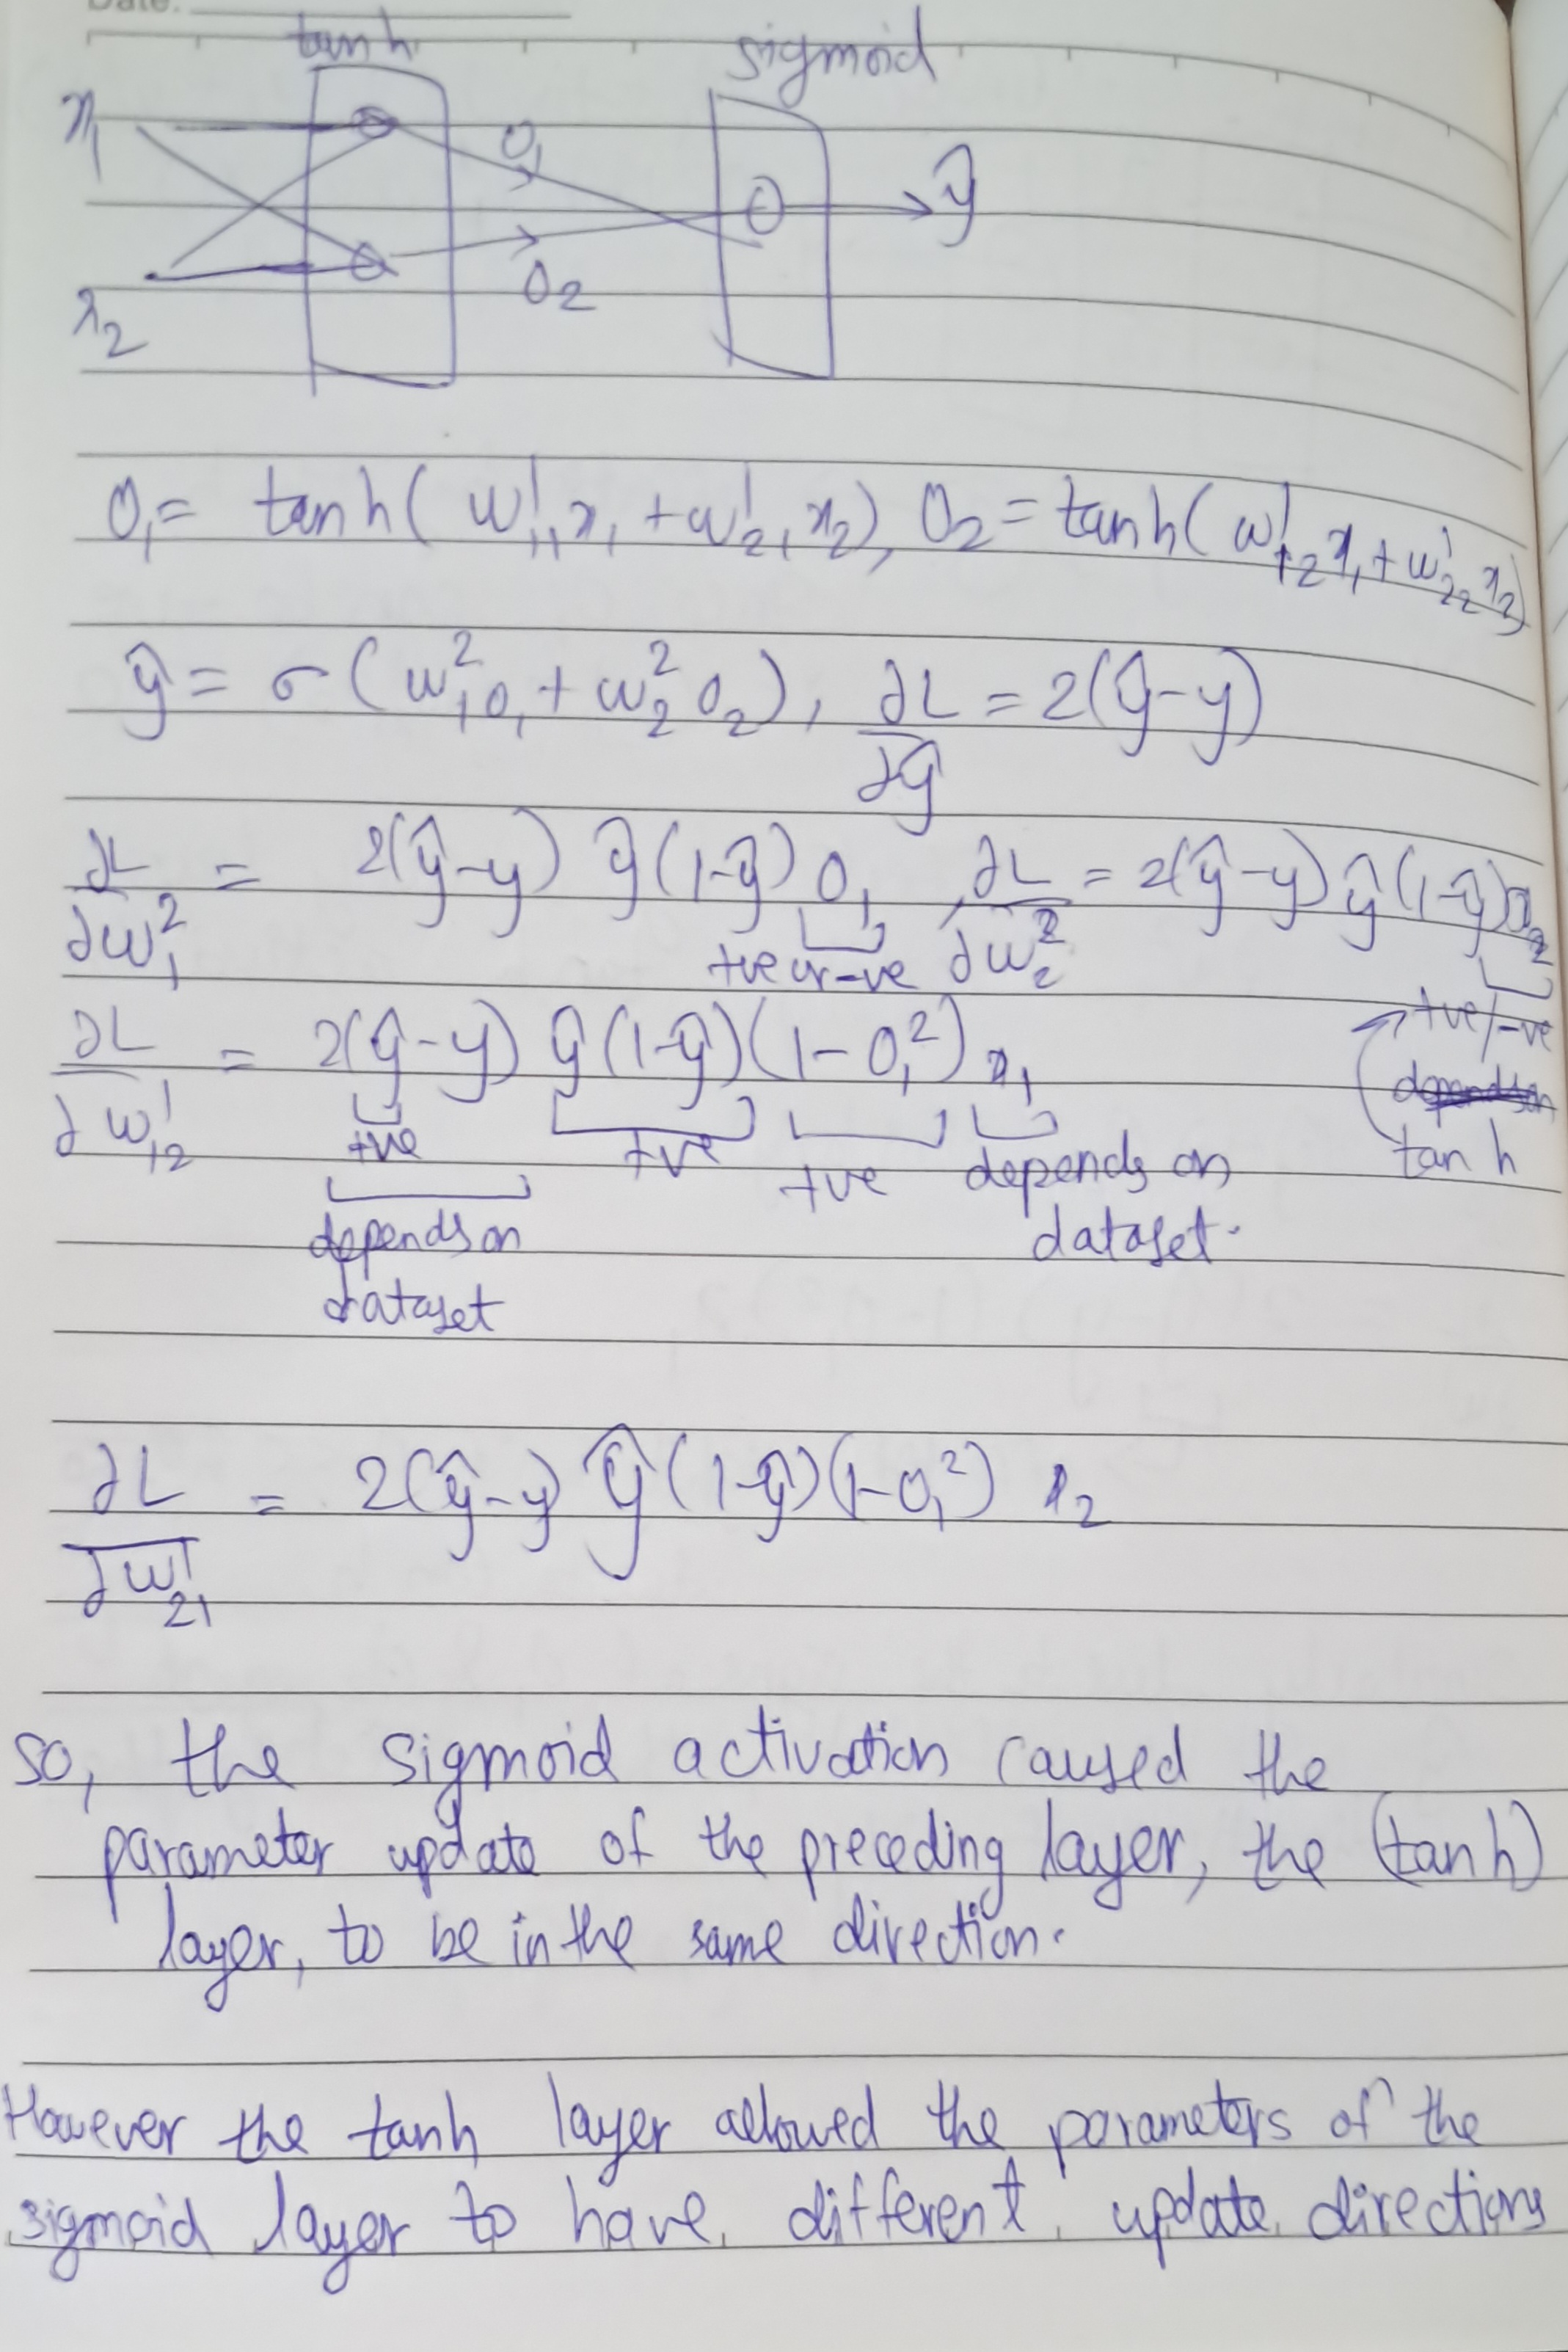 Date:
tanh sigmoid
x₁ O₁ ŷ
x₂ O₂
O₁ = tanh( w¹₁₁x₁ + w¹₂₁x₂), O₂ = tanh( w¹₁₂x₁ + w¹₂₂x₂)
ŷ = σ ( w²₁o₁ + w²₂O₂ ), ∂L/∂ŷ = 2(ŷ-y)
∂L/∂w²₁ = 2(ŷ-y) ŷ(1-ŷ) O₁, ∂L/∂w²₂ = 2(ŷ-y) ŷ(1-ŷ)O₂
+ve or -ve
+ve/-ve
tanh
∂L/∂w¹₁₂ = 2(ŷ-y) ŷ(1-ŷ)(1-O₁²) x₁
+ve +ve +ve depends on
dataset.
depends on
dataset
∂L/∂w¹₂₁ = 2(ŷ-y) ŷ(1-ŷ)(1-O₁²) x₂
So, the sigmoid activation caused the
parameter update of the preceding layer, the (tanh)
layer, to be in the same direction.
However the tanh layer allowed the parameters of the
sigmoid layer to have different update directions